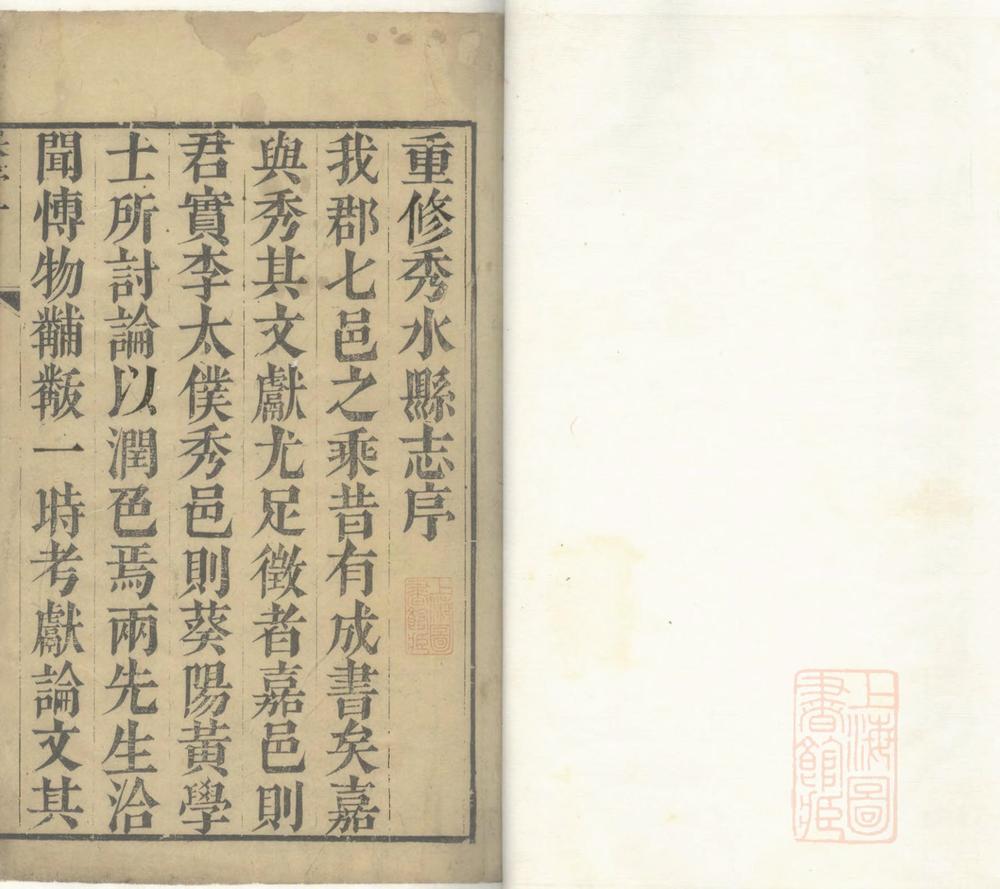 重修秀水縣志序
我郡七邑之乘昔有成書矣嘉
與秀其文獻尤足徵者嘉邑則
君實李太僕秀邑則葵陽黃學
士所討論以潤色焉兩先生洽
聞愽物黼黻一時考獻論文其
上海圖書館藏
上海圖書館藏